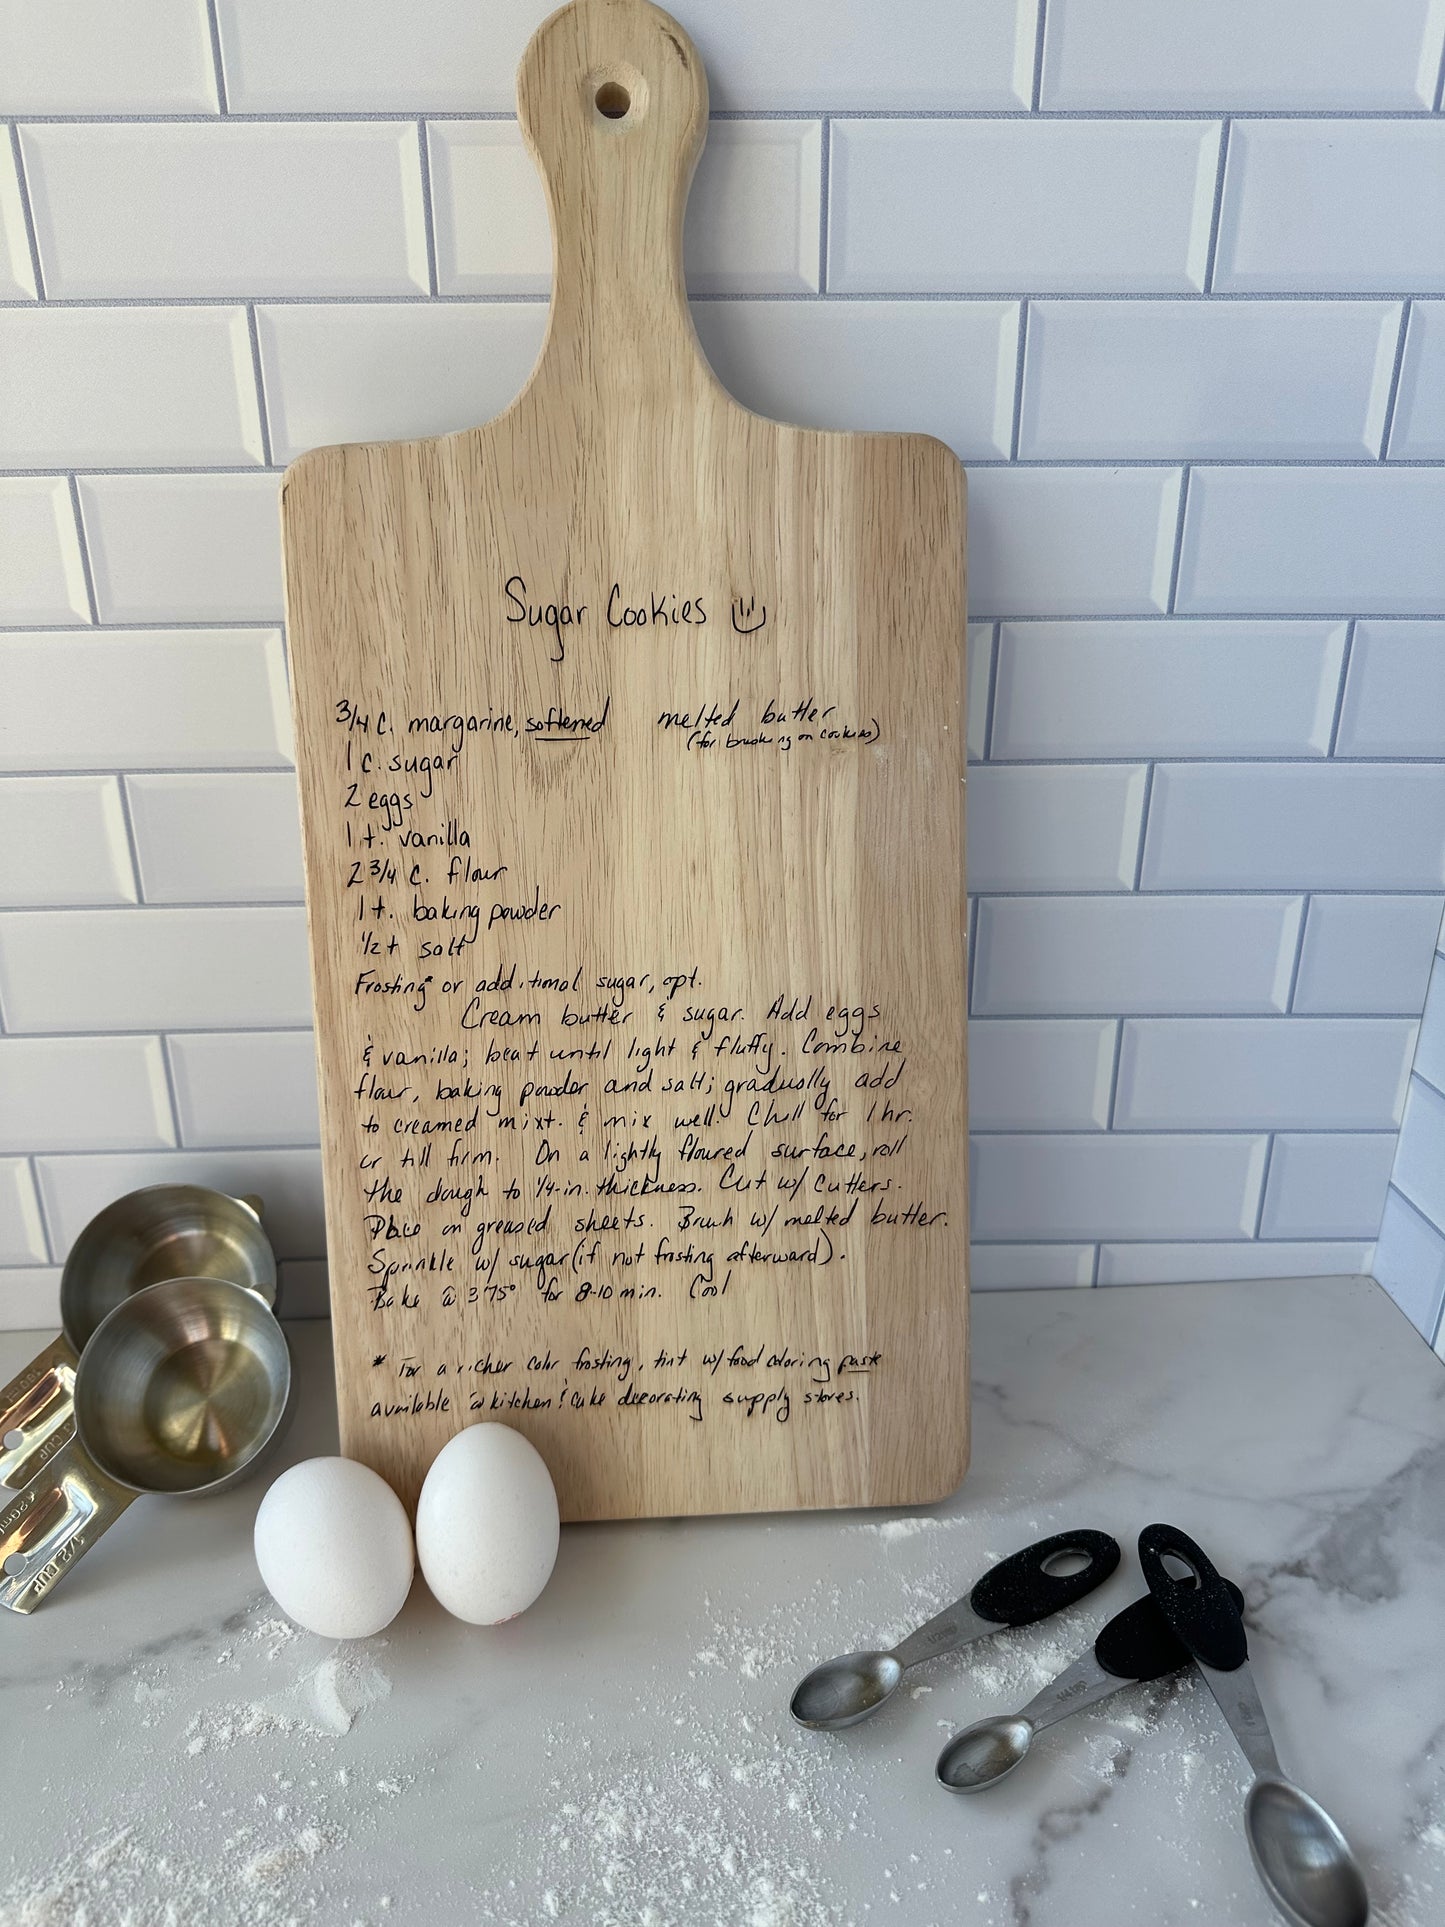 Sugar Cookies
3/4 c. margarine, softened
melted butter
(for brushing on cookies)
1 c. sugar
2 eggs
1 t. vanilla
2 3/4 c. flour
1 t. baking powder
1/2 t salt
Frosting* or additional sugar, opt.
Cream butter & sugar. Add eggs
& vanilla; beat until light & fluffy. Combine
flour, baking powder and salt; gradually add
to creamed mixt. & mix well. Chill for 1 hr.
or till firm. On a lightly floured surface, roll
the dough to 1/4-in. thickness. Cut w/ cutters.
Place on greased sheets. Brush w/ melted butter.
Sprinkle w/ sugar (if not frosting afterward).
Bake @ 375° for 8-10 min. Cool
* For a richer color frosting, tint w/ food coloring paste
available @ kitchen & cake decorating supply stores.
1/2 CUP
CUP